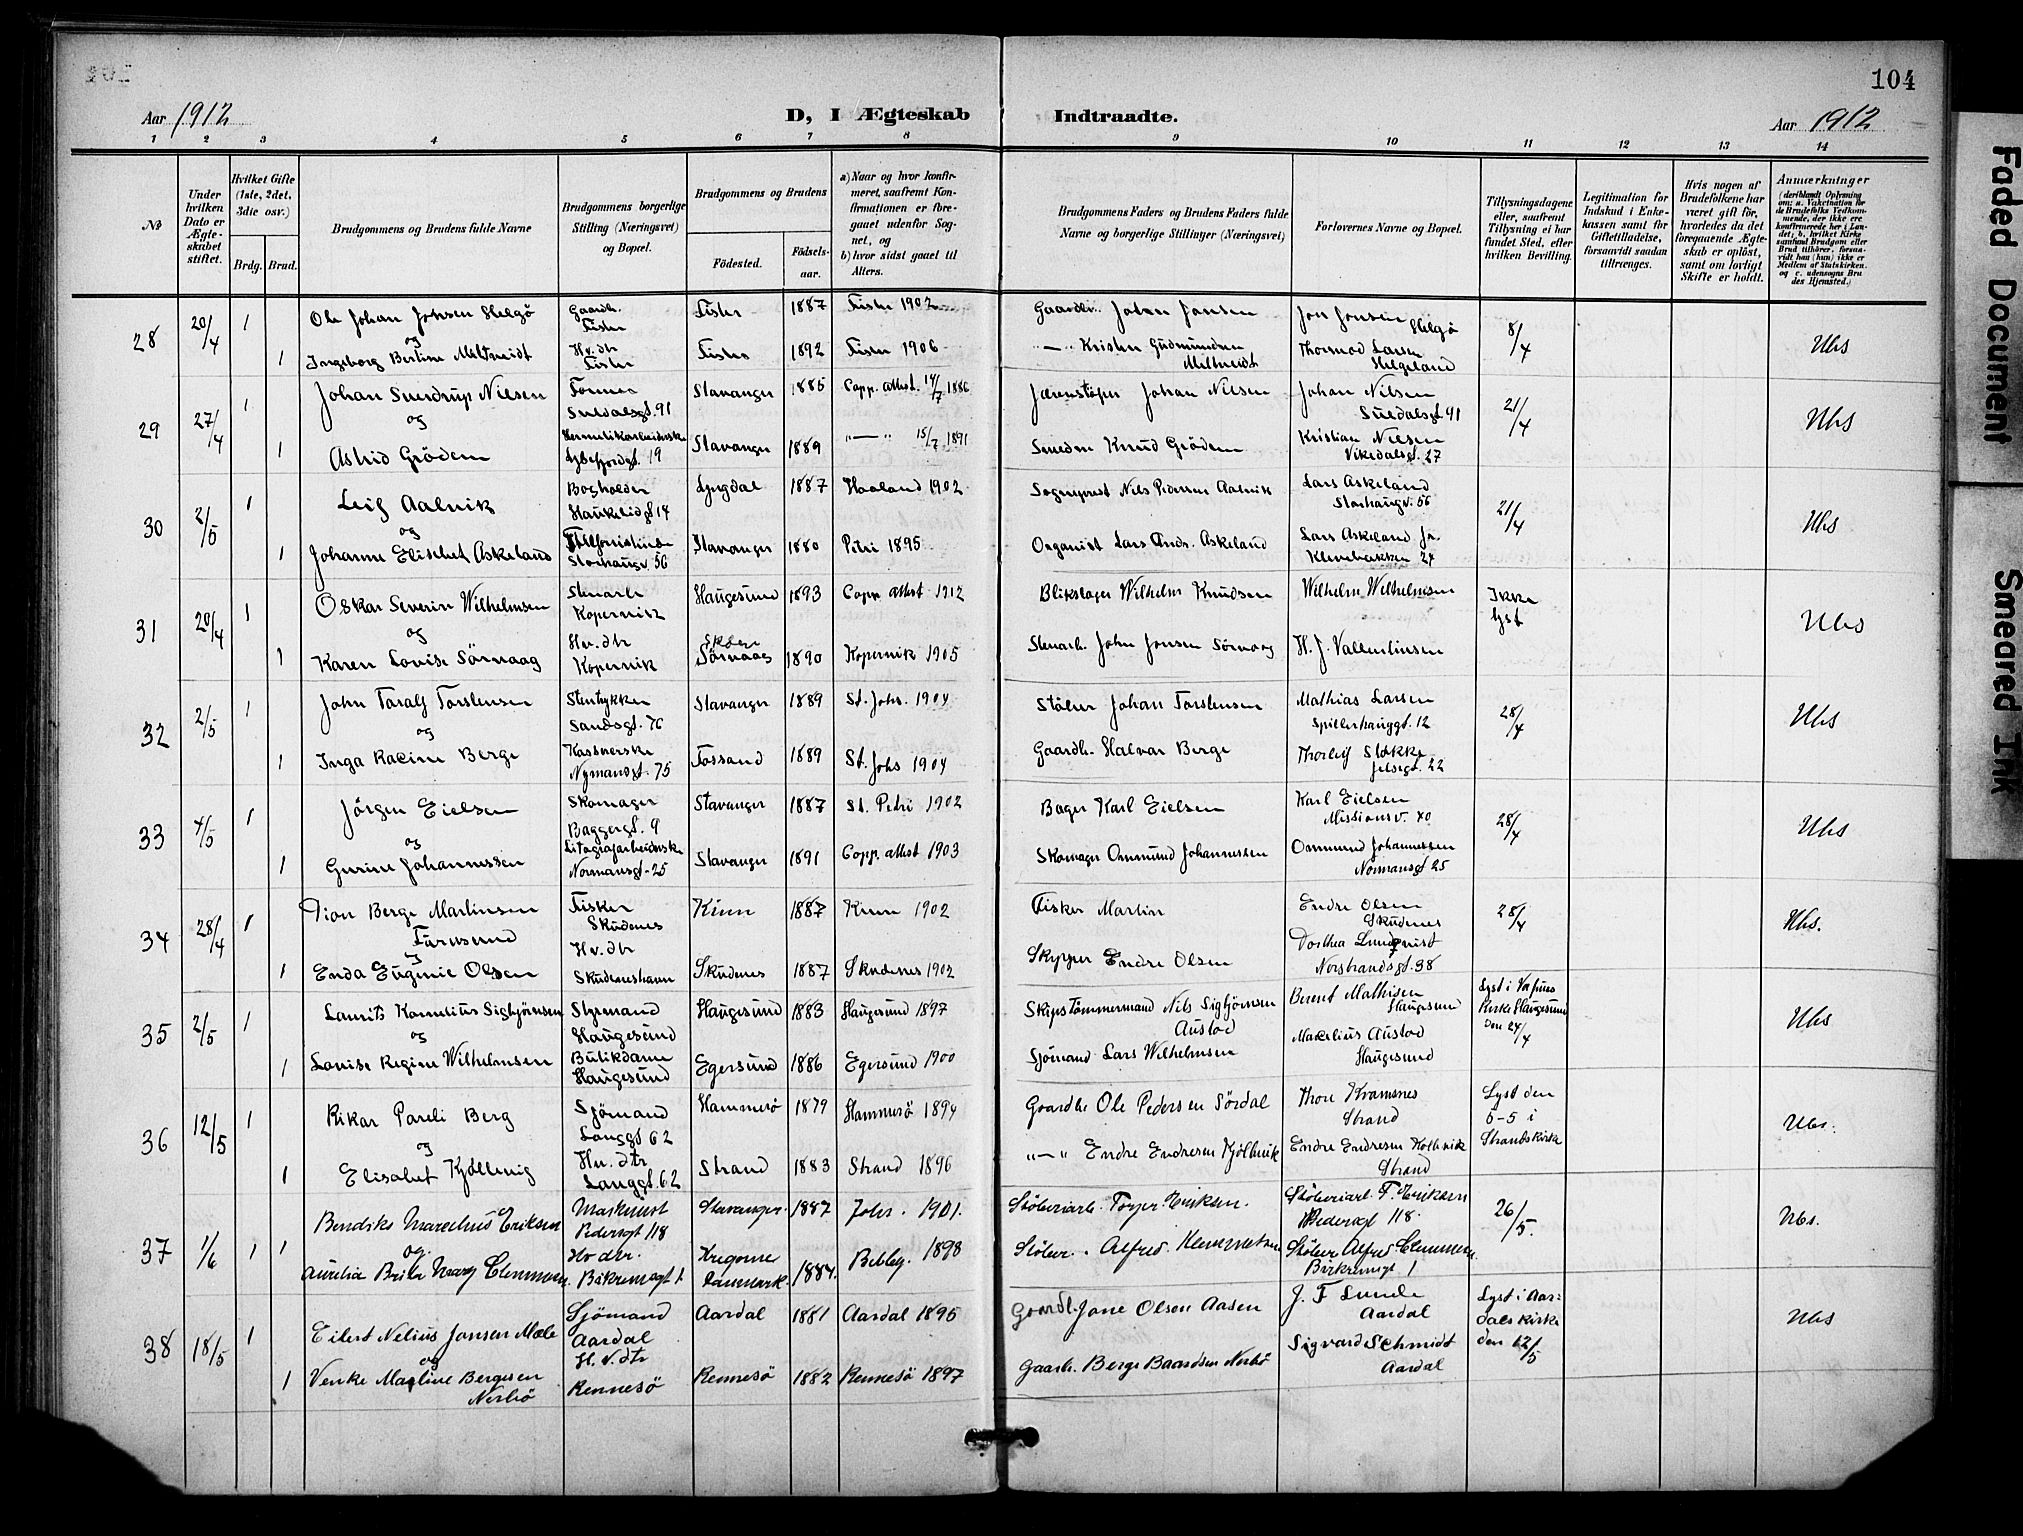 104
Aar 1912
D, I Ægteskab Indtraadte.
Aar 1912
1 2 3 4 5 6 7 8 9 10 11 12 13 14
№
Under hvilken Dato er Ægteskabet stiftet.
Hvilket Gifte (1ste, 2det, 3die osv.)
Brdg. Brud.
Brudgommens og Brudens fulde Navne
Brudgommens borgerlige Stilling (Næringsvei) og Bopæl.
Brudgommens og Brudens
Fødested.
Fødselsaar.
a) Naar og hvor konfirmeret, saafremt Konfirmationen er foregaaet udenfor Sognet, og
b) hvor sidst gaaet til Alters.
Brudgommens Faders og Brudens Faders fulde Navne og borgerlige Stillinger (Næringsvei)
Forlovernes Navne og Bopæl.
Tillysningsdagene eller, saafremt Tillysning ei har fundet Sted, efter hvilken Bevilling.
Legitimation for Indskud i Enkekassen samt for Giftetilladelse, forsaavidt saadan tiltrænges.
Hvis nogen af Brudefolkene har været gift før, hvorledes da det foregaaende Ægteskab er opløst, samt om lovligt Skifte er holdt.
Anmærkninger
(deriblandt Oplysning om: a. Vakcination for de Brudefolks Vedkommende, der ikke ere konfirmerede her i Landet; b. hvilket Kirkesamfund Brudgom eller Brud tilhører, forsaavidt han (hun) ikke er Medlem af Statskirken, og c. udensogns Brudes Hjemsted.)
28 20/4 1 Ole Johan Jonsen Helgö Gaardb. Fister Fister 1887 Fister 1902 Gaardbr. Johan Jonsen Jon Jonsen Helgö 8/4 Ubs
og
1 Ingeborg Bertine Meltveidt Hv. dtr Fister Fister 1892 Fister 1906 -"- Kristen Gudmundsen Meltveidt Thormod Larsen Helgeland
29 27/4 1 Johan Sverdrup Nilsen Former Suldalsgt. 91 Stavanger 1885 Copp. attest. 14/7 1886 Johan Nilsen Johan Nilsen Suldalsgt. 91 21/4 Ubs
og
1 Astrid Grödem 19 Stavanger 1889 "—" 15/7 1891 Smeden Knud Grödem Kristian Nilsen Vikedalsgt. 27
30 2/5 1 Leif Aalvik Bogholder Haukeligt 14 Lyngdal 1887 Haaland 1902 Sogneprest Nils Pedersen Aalvik Lars Askeland Storhaugv. 56 21/4 Ubs
og
1 Johanne Elisabet Askeland Storhaugv. 56 Stavanger 1880 Petri 1895 Organist Lars Andr. Askeland Lars Askeland Jr. Klevebakken 24
31 20/4 1 Oskar Severin Wilhelmsen Stenarb. Kopervik Haugesund 1893 Copp attest 1912 Blikslager Wilhelm Knudsen Wilhelm Wilhelmsen Ikke lyst Ubs
og
1 Karen Lovise Sörnaag Hv. dtr Kopervik Sörnaag 1890 Kopervik 1905 Stenarb. John Jonsen Sörnaag H. J. Vallentinsen
32 2/5 1 John Taralf Torstensen Stentrykker Sandsgt. 76 Stavanger 1889 St. Johs. 1904 Stöber Johan Torstensen Mathias Larsen Spilderhauggt. 12 28/4 Ubs
og
1 Inga Racine Berge Kasserske Nymansgt. 75 Fossand 1889 St. Johs 1904 Gaardb. Halvar Berge Thorleif Stokke Jelsegt. 22
33 4/5 1 Jörgen Eielsen Skomager Baggergt. 9 Stavanger 1887 St. Petri 1902 Bager Karl Eielsen Karl Eielsen Missionsv. 40 28/4 Ubs
og
1 Gurine Johannessen Litografarbeiderske Normansgt. 25 Stavanger 1891 Copp. attest 1903 Skomager Ommund Johannessen Ommund Johannessen Normansgt 25
34 28/4 1 Berge Martinsen Fisker Skudenes Kinn 1887 Kinn 1902 Fisker Martin Endre Olsen Skudenes 28/4 Ubs.
og
1 Enda Euginie Olsen Hv. dtr Skudeneshavn Skudenes 1887 Skudenes 1902 Skypper Endre Olsen Dorthea Lundqvist Norstrandsgt. 38
35 2/5 1 Laurits Kornelius Sigbjörnsen Styrmand Haugesund Haugesund 1883 Haugesund 1897 Skipstömmermand Nils Sigbjörnsen Austad Berent Mathisen Haugesund Lyst i Vor frues Kirke Haugesund den 24/4 Ubs
og
1 Lovise Regine Wilhelmsen Butikdame Haugesund Egersund 1886 Egersund 1900 Sjömand Lars Wilhelmsen Makelius Austad Haugesund
36 12/5 1 Rikar Pareli Berg Sjömand Langgt 62 Hammerö 1879 Hammerö 1894 Gaardb Ole Pedersen Sördal Thore Kramsnes Strand Lyst den 5-5 i Strandskirke Ubs.
og
1 Elisabet Kjöllevig Hv. dtr Langgt. 62 Strand 1883 Strand 1896 "—" Endre Endresen Kjöllevik Endre Endresen Kolhevik Strand
37 1/6 1 Bendiks Marechus Eriksen Maskinist Pedersgt 118 Stavanger 1887 Johs. 1901. Stöberiarb. Torger Eriksen. Stöberiarb. T. Eriksen Pedersgt 118. 26/5. Ubs.
og
1 Aurelia Brita Mary Clemmensen Hv dtr. Birkremsgt 1. Danmark. 1884. Bebby. 1898 Stöber. Alfred Clemmensen Stöber Alfred Clemmensen. Birkremsgt 1
38 18/5 1 Eilert Nelius Jansen Mæle Sjömand Aardal Aardal 1881 Aardal 1895 Gaardb. Jone Olsen Aasen J. F Lunde Aardal Lyst i Aardals kirke den 12/5 Ubs
og
1 Venke Martine Bergesen Nerbö H. v. dtr Rennesö Rennesö 1882 Rennesö 1897 Gaarb. Berge Baardsen Nerbö Sigvard Schmidt Aardal
Faded Document
Smeared Ink